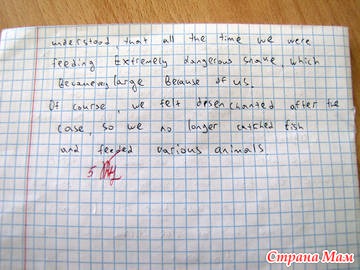 understood, that all the time we were
feeding Extremely dangerous snake, which
Becamevery large Because of us.
Of course, we felt desenchanted after the
case, so we no longer catched fish
and feeded various animals.
5
Страна Мам